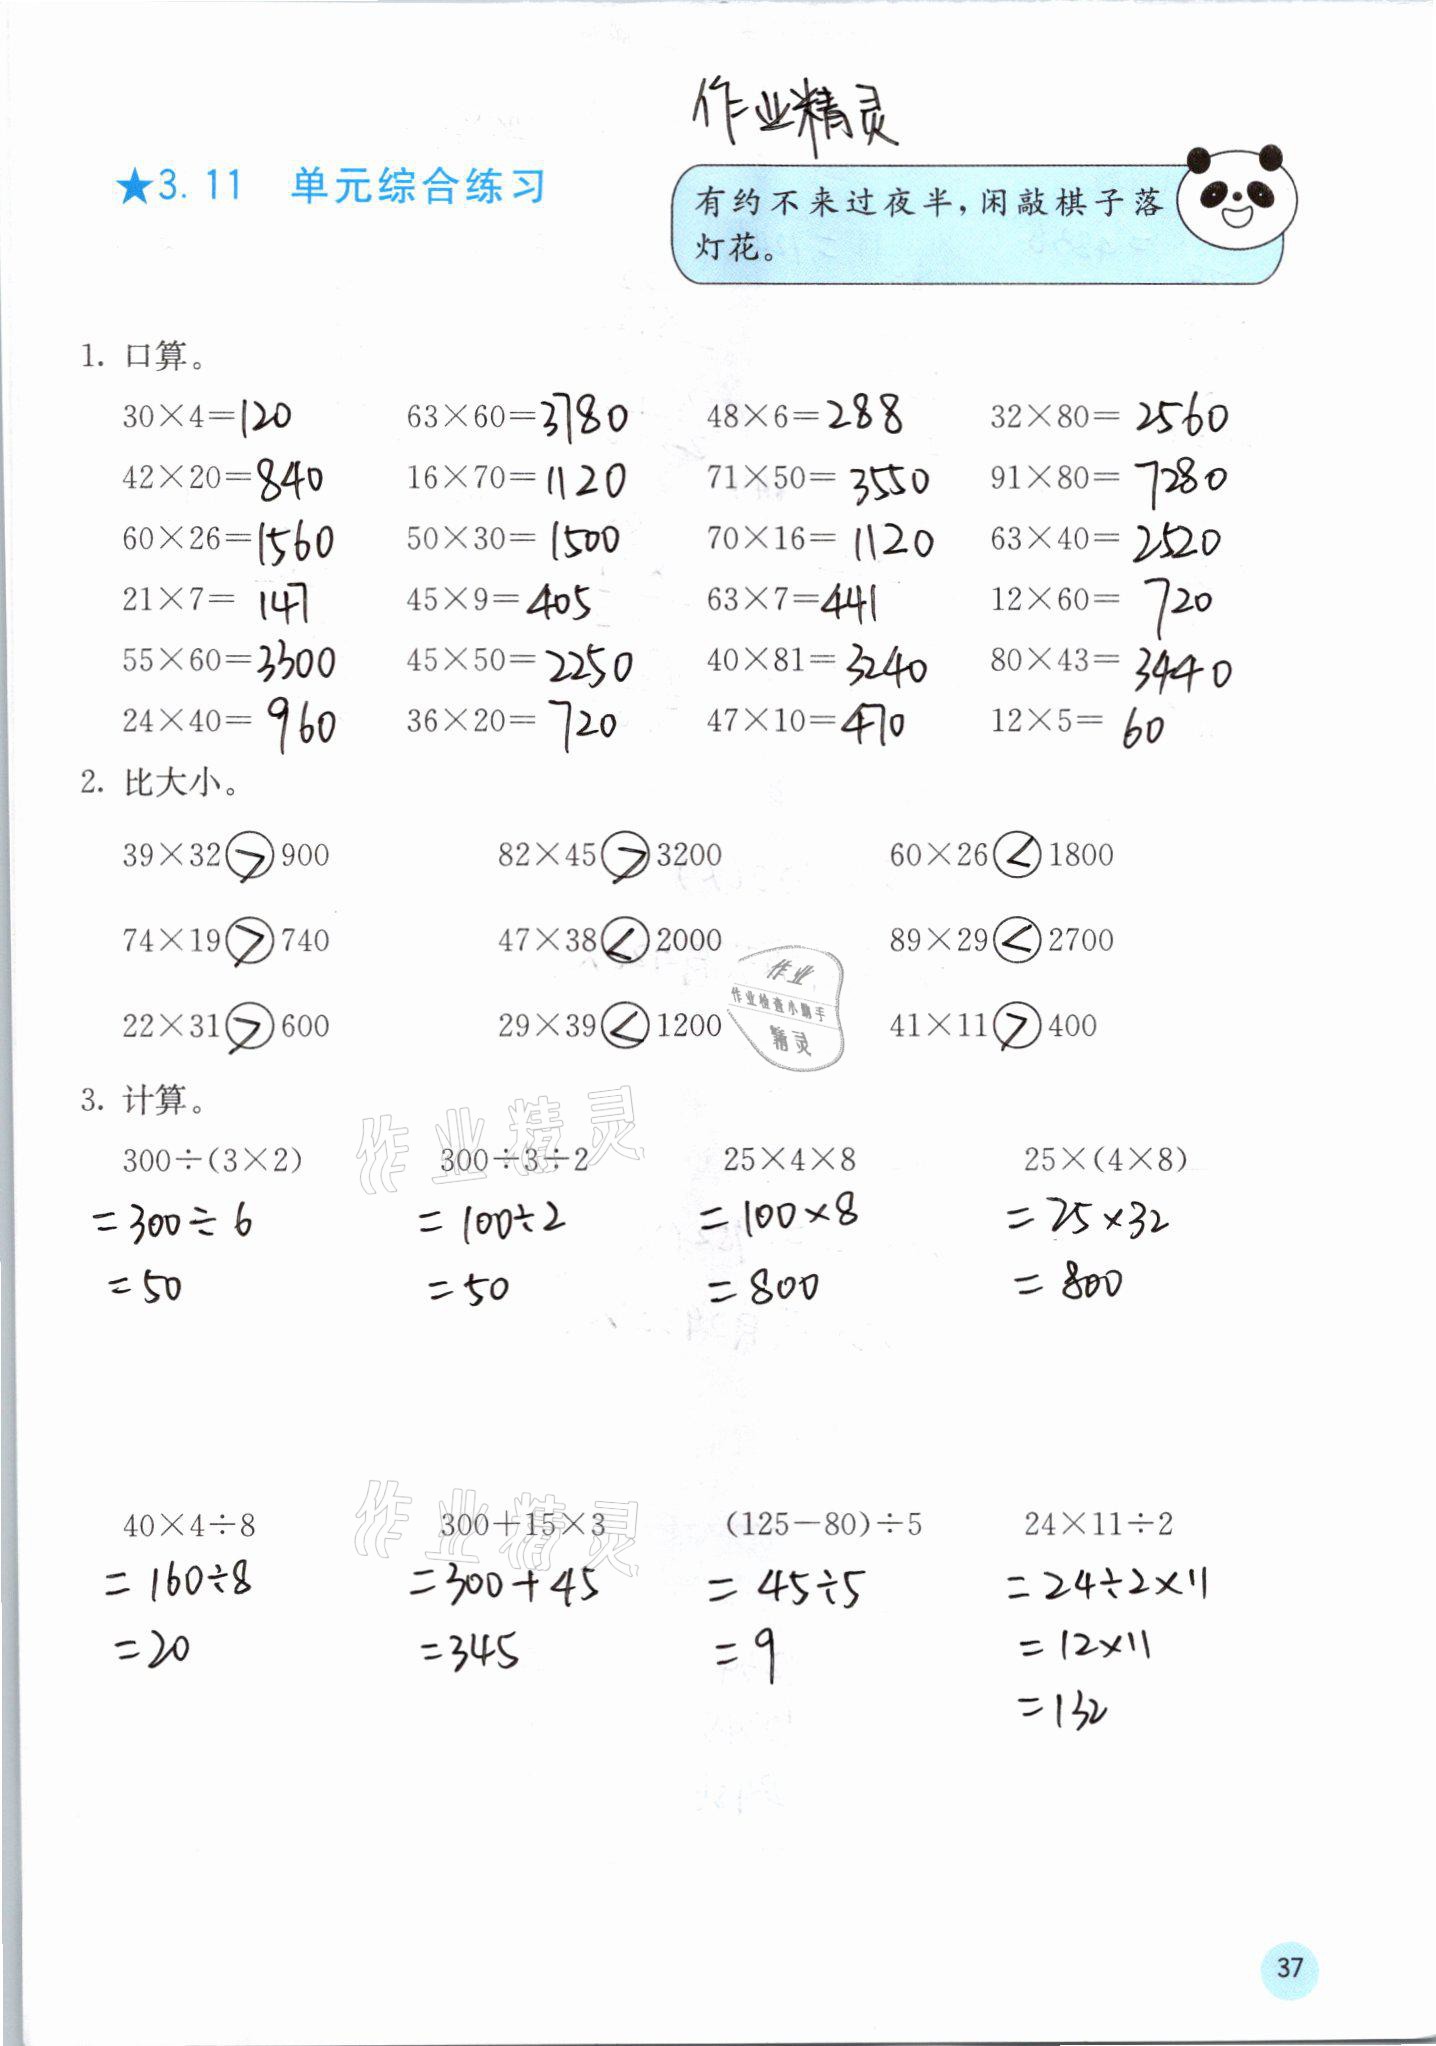 作业精灵
★3.11 单元综合练习
有约不来过夜半，闲敲棋子落
灯花。
1. 口算。
30×4=120 63×60=3780 48×6=288 32×80=2560
42×20=840 16×70=1120 71×50=3550 91×80=7280
60×26=1560 50×30=1500 70×16=1120 63×40=2520
21×7=147 45×9=405 63×7=441 12×60=720
55×60=3300 45×50=2250 40×81=3240 80×43=3440
24×40=960 36×20=720 47×10=470 12×5=60
2. 比大小。
39×32>900 82×45>3200 60×26<1800
74×19>740 47×38<2000 89×29<2700
22×31>600 29×39<1200 41×11>400
作业
作业检查小助手
精灵
3. 计算。
作业精灵
300÷(3×2) 300÷3÷2 25×4×8 25×(4×8)
=300÷6 =100÷2 =100×8 =25×32
=50 =50 =800 =800
作业精灵
40×4÷8 300+15×3 (125-80)÷5 24×11÷2
=160÷8 =300+45 =45÷5 =24÷2×11
=20 =345 =9 =12×11
=132
37